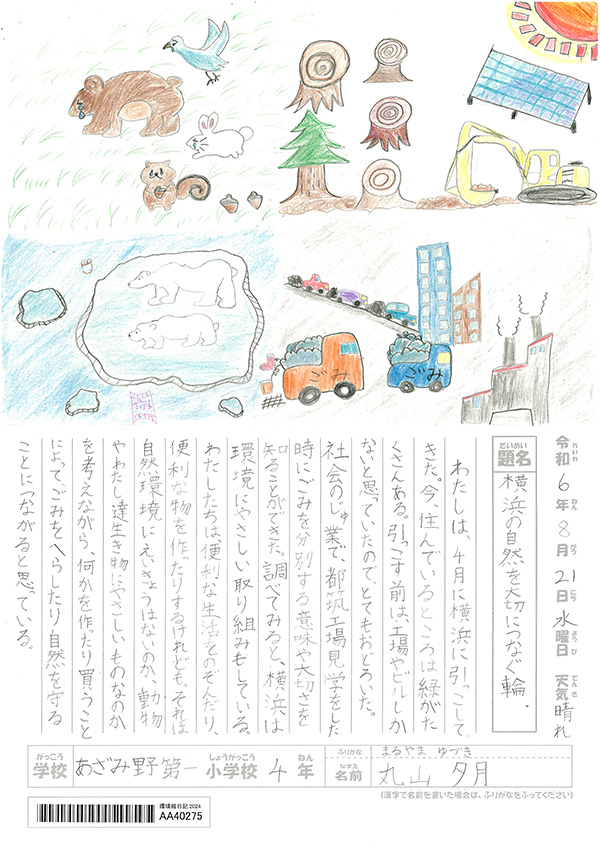 ごみ
ごみ
令和6年8月21日水曜日 天気 晴れ
れいわ ねん がつ にち ようび てんき
だいめい
題名 横浜の自然を大切につなぐ輪.
わたしは、4月に横浜に引っこして
きた。今、住んでいるところは緑がた
くさんある。引っこす前は、工場やビルしか
ないと思っていたので、とてもおどろいた。
社会のじゅ業で、都筑工場見学をした
時にごみを分別する意味や大切さを
知ることができた。調べてみると、横浜は
環境にやさしい取り組みもしている。
わたしたちは便利な生活をのぞんだり、
便利な物を作ったりするけれども、それは
自然環境にえいきょうはないのか、動物
やわたし達生き物にやさしいものなのか
を考えながら、何かを作ったり買うこと
によって、ごみをへらしたり自然を守る
ことにつながると思っている。
がっこう しょうがっこう ねん
学校 あざみ野第一小学校 4年
ふりがな まるやま ゆづき
なまえ
名前 丸山 夕月
(漢字で名前を書いた場合は、ふりがなをふってください)
環境絵日記2024
AA40275